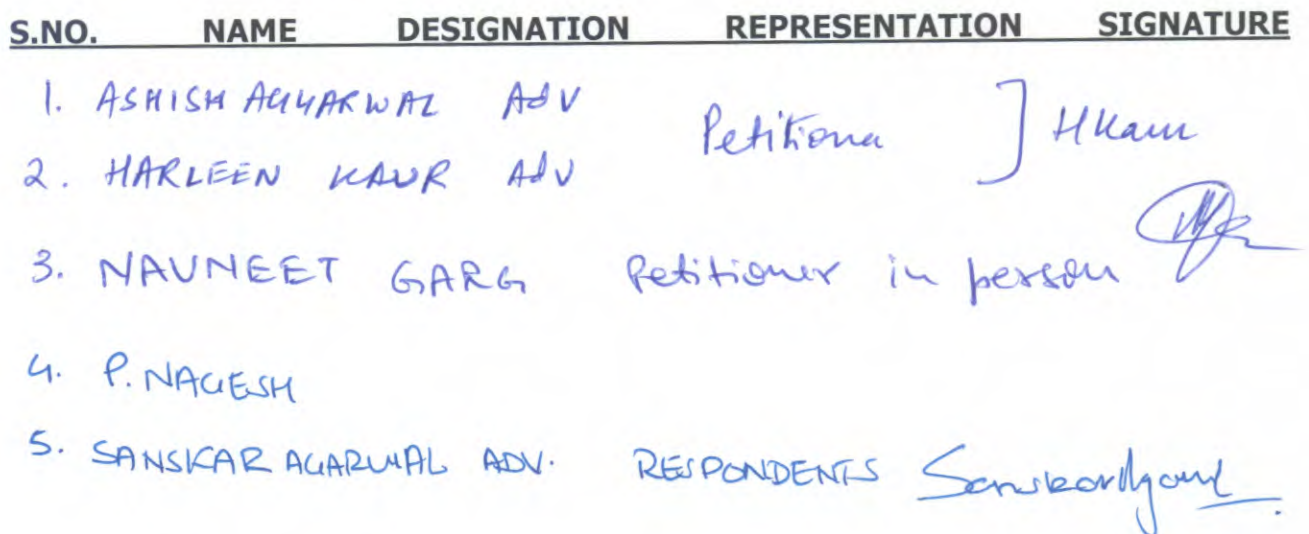 S.NO. NAME DESIGNATION REPRESENTATION SIGNATURE
1. ASHISH AGGARWAL ADV Petitioner ] HKaur
2. HARLEEN KAUR ADV
3. NAVNEET GARG Petitioner in person
4. P. NAGESH
5. SANSKAR AGARWAL ADV. RESPONDENTS